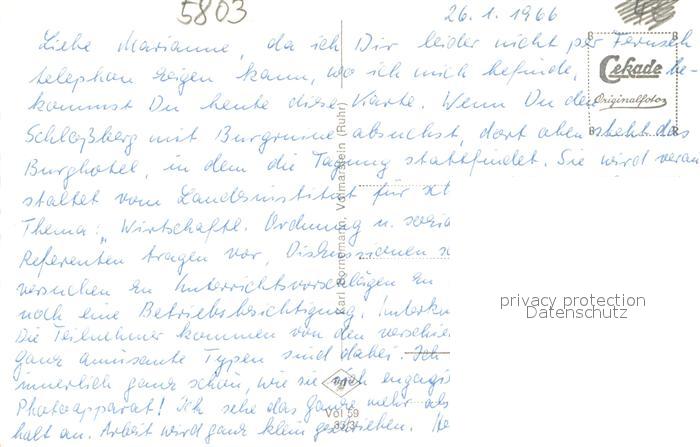 5803
26.1.1966
Liebe Marianne, da ich Dir leider nicht per Fernseh
telephon zeigen kann, wo ich mich befinde, be-
kommst Du heute diese Karte. Wenn Du den
Schloßberg mit Burgruine absuchst, dort oben steht das
Burghotel, in dem die Tagung stattfindet. Sie wird veran
staltet vom Landesinstitut für
Thema: „Wirtschaftl. Ordnung u. sozia
Referenten tragen vor, Diskussionen
versuchen zu Unterrichtsvorschlägen zu
noch eine Betriebsbesichtigung.
Die Teilnehmer kommen von den verschie
ganz amüsante Typen sind dabei. Ich
innerlich ganz schön, wie sie sich
Photoapparat! Ich sehe das Ganze mehr als
halt an. Arbeit wird ganz klein geschrieben.
Cekade
Originalfotos
B B
B B
Karl Bornemann, Volmarstein (Ruhr)
Vol 59
privacy protection
Datenschutz